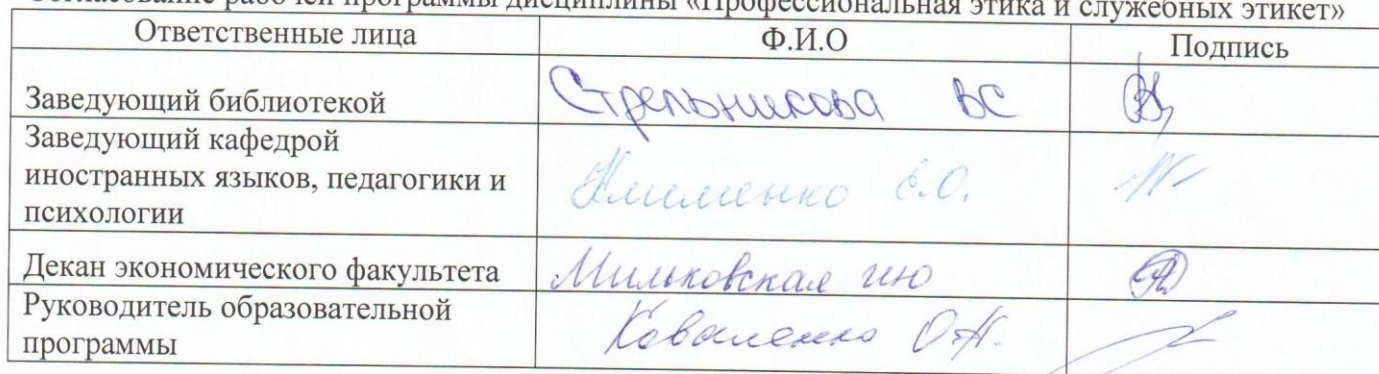 Согласование рабочей программы дисциплины «Профессиональная этика и служебных этикет»
Ответственные лица Ф.И.О Подпись
Заведующий библиотекой Стрельникова ВС
Заведующий кафедрой
иностранных языков, педагогики и
психологии Клименко Е.О.
Декан экономического факультета Мильковская ИЮ
Руководитель образовательной
программы Коваленко О.Н.